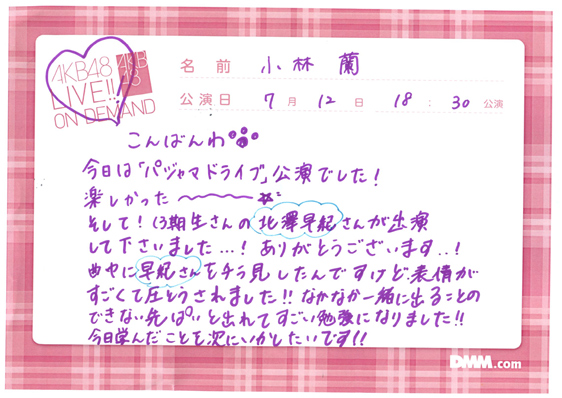 AKB48
LIVE!!
ON DEMAND
AKB
48
名前 小林蘭
公演日 7月12日 18:30公演
こんばんわ
今日は「パジャマドライブ」公演でした!
楽しかった〜
そして!13期生さんの北澤早紀さんが出演
して下さいました…!ありがとうございます..!
曲中に早紀さんをチラ見したんですけど、表情が
すごくて圧とうされました!!なかなか一緒に出ることの
できない先ぱいと出れてすごい勉強になりました!!
今日学んだことを次にいかしたいです!!
DMM.com